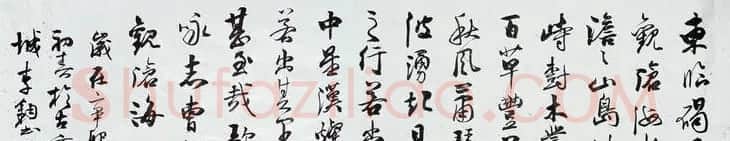 東臨碣
觀滄海
澹々山島
峙樹木叢
百草豐
秋風蕭瑟
波湧起日
之行若出
中星漢燦
若出其里
甚至哉歌
咏志曹
觀滄海
歲在辛卯
初春於古
城李
Shufaziliao.COM